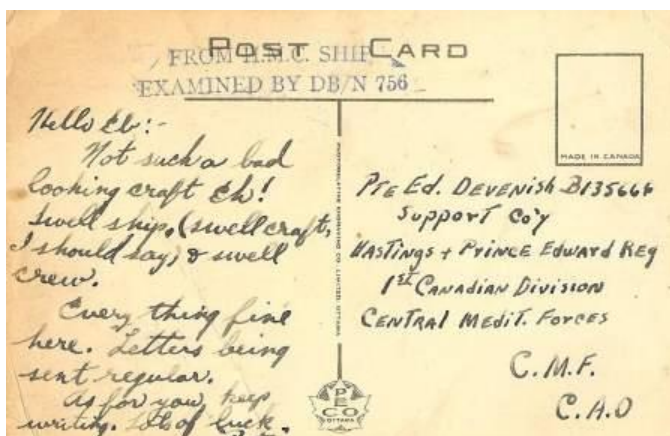 POST CARD
FROM H.M.C. SHIP
EXAMINED BY DB/N 756
MADE IN CANADA
Hello Eb:-
Not such a bad
looking craft Eh!
Swell ship, (swell craft,
I should say) & swell
crew.
Every thing fine
here. Letters being
sent regular.
As for you, keep
writing. Lots of luck.
PHOTOGELATINE ENGRAVING CO. LIMITED, OTTAWA
PECO
OTTAWA
Pte Ed. DEVENISH B135664
Support Co'y
HASTINGS + PRINCE EDWARD REG
1st CANADIAN DIVISION
CENTRAL MEDIT. FORCES
C.M.F.
C.A.O